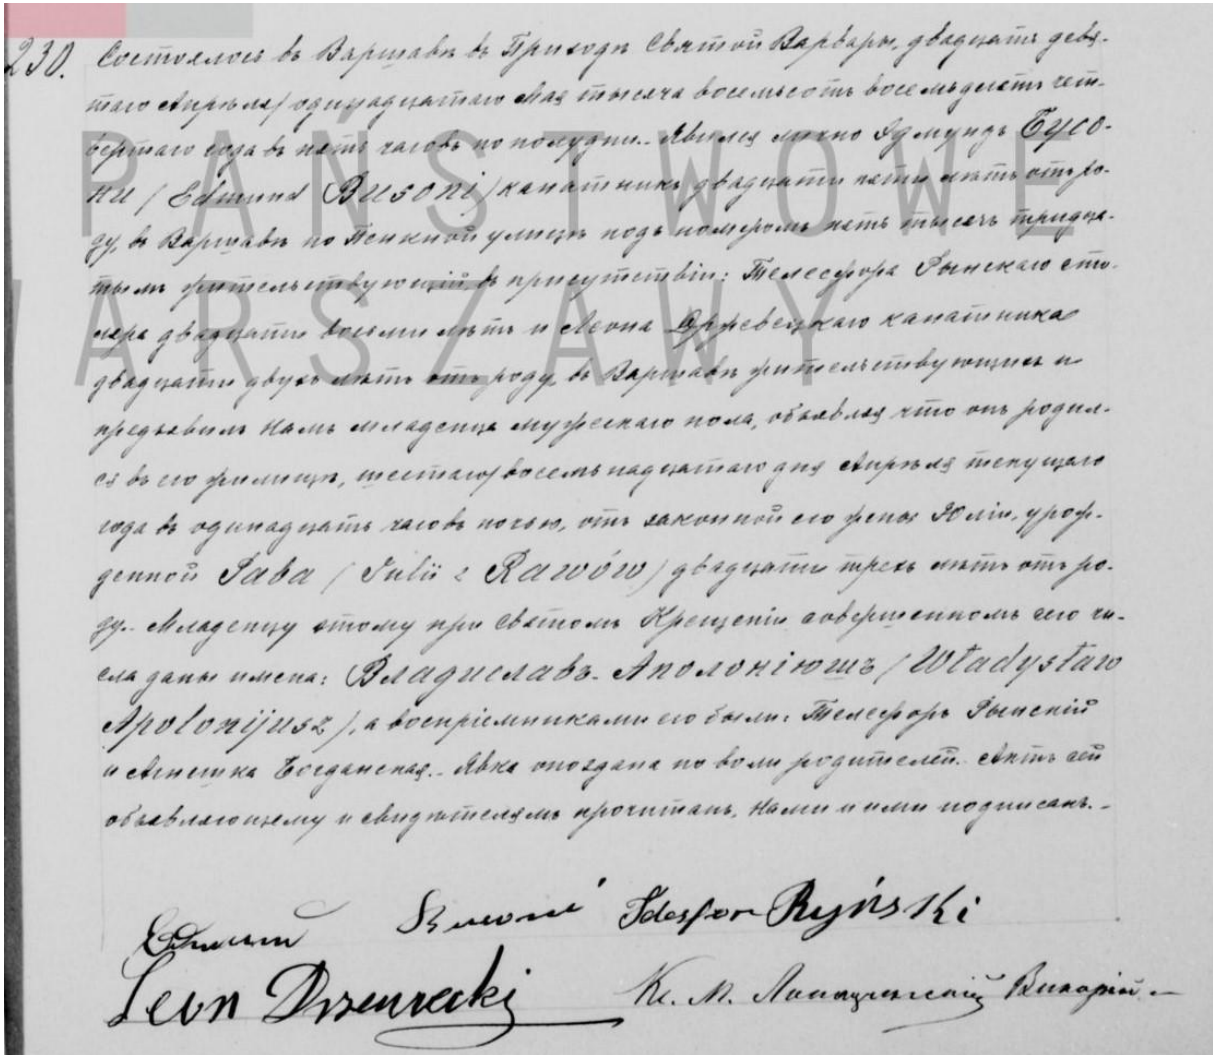 230. Состоялось въ Варшавѣ въ Приходѣ Святой Варвары, двадцать девя-
таго Апрѣля/одинадцатаго Мая тысяча восемьсотъ восемьдесятъ чет-
вертаго года въ пять часовъ по полудни.. Явился лично Эдмундъ Бусо-
ни / Edmund Busoni / канатникъ двадцати пяти лѣтъ отъ ро-
ду, въ Варшавѣ по Пенкной улицѣ подъ номеромъ пять тысячъ тридца-
тымъ жительствующій въ присутствіи: Телесфора Рынскаго сто-
ляра двадцати восьми лѣтъ и Леона канатника
двадцати двухъ лѣтъ отъ роду, въ Варшавѣ жительствующихъ и
предъявилъ Намъ младенца мужескаго пола, объявляя что онъ родил-
ся въ его жилищѣ, шестаго/восемьнадцатаго дня Апрѣля текущаго
года въ одинадцать часовъ ночью, отъ законной его жены Юліи, урож-
денной Рава / Julii z Rawów / двадцати трехъ лѣтъ отъ ро-
ду.. Младенцу этому при Святомъ Крещеніи совершенномъ сего чи-
сла даны имена: Владиславъ-Аполоніюшъ / Władysław
Apolonijusz /, а воспріемниками его были: Телесфоръ Рынскій
и Агнешка Богданская.. Явка опоздана по воли родителей.. Актъ сей
объявляющему и свидѣтелямъ прочитанъ, Нами и ими подписанъ. -
PAŃSTWOWE
WARSZAWY
Edmund Busoni Telesfor Ryński
Leon Кс. М. Викарій. -